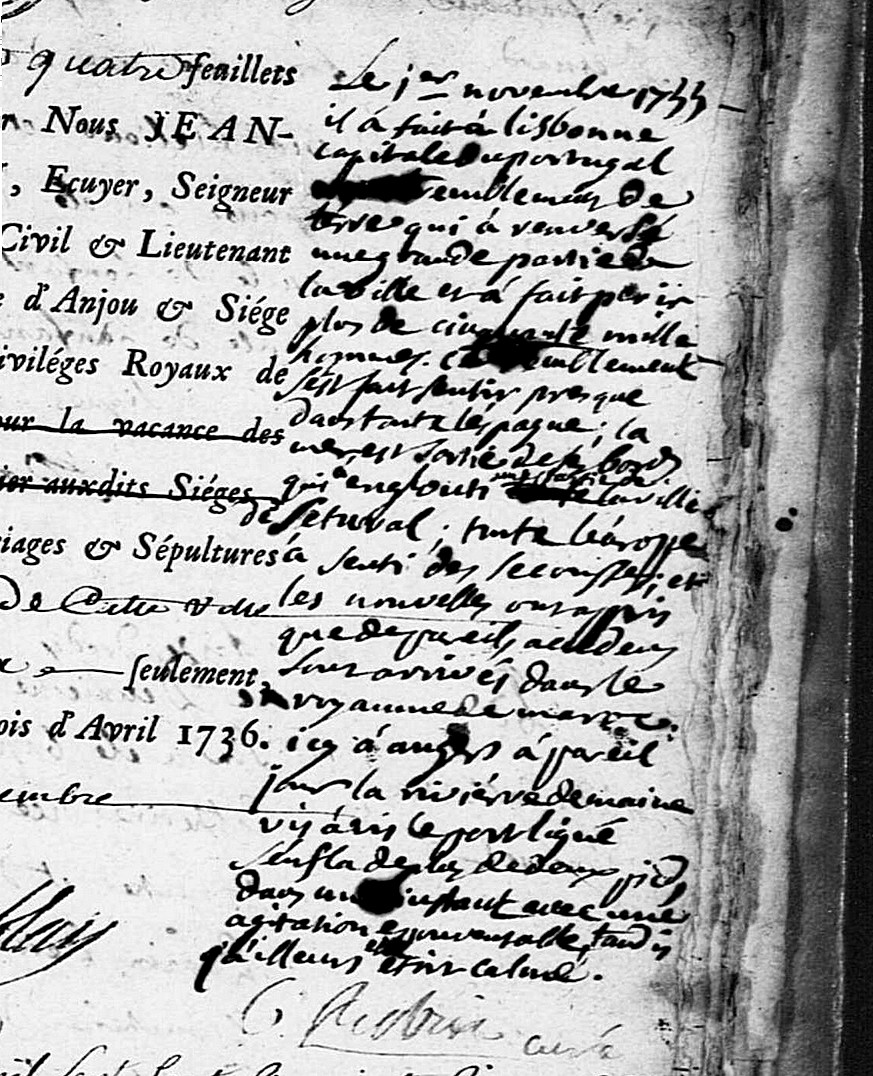 quatre feuillets
Nous JEAN-
, Ecuyer, Seigneur
Civil & Lieutenant
d'Anjou & Siége
iviléges Royaux de
our la vacance des
ier auxdits Siéges
iages & Sépultures
De Cette
seulement,
ois d'Avril 1736.
embre
Le 1er novembre 1755
il á fait á lisbonne
capitale du portugal
tremblement de
terre qui á renversé
une grande partie de
la ville et á fait perir
plus de cinquante mille
hommes. Ce tremblement
s'est fait sentir presque
dans toute l'espagne ; la
mer est sortie de ses bords
qui á englouti une partie de la ville
de Setuval ; toute l'éurope
á senti des secousses ; et
les nouvelles ont appris
que de pareils accidens
sont arrivés dans le
royaume de maroc.
icy á angers á pareil
jour la riviérre de maine
vis á vis le port ligné
s'enfla de plus de deux pieds
dans un instant avec une
agitation epouventable, tandis
qu'ailleurs elle étoit calme.
C. Robin curé